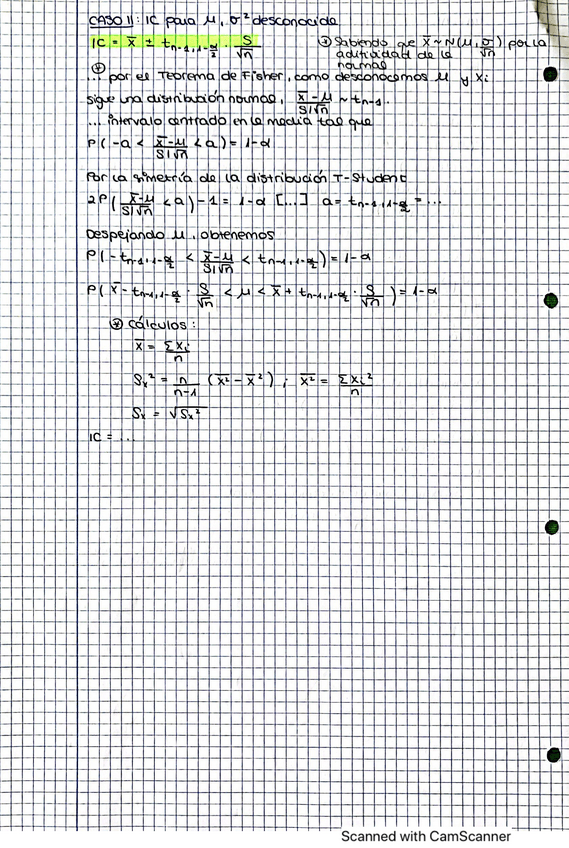 CASO II: IC para μ, σ² desconocida
IC = x̄ ± t_{n-1, 1-α/2} · S/√n
⊛ Sabiendo que x̄ ~ N(μ, σ/√n) por la
aditividad de la
normal
⊛
... por el Teorema de Fisher, como desconocemos μ y Xi
sigue una distribución normal, (x̄-μ)/(S/√n) ~ t_{n-1}.
... intervalo centrado en la media tal que
P(-a < (x̄-μ)/(S/√n) < a) = 1-α
Por la simetría de la distribución T-Student
2P((x̄-μ)/(S/√n) < a) - 1 = 1-α [...] a = t_{n-1, 1-α/2} = ...
Despejando μ, obtenemos
P(-t_{n-1, 1-α/2} < (x̄-μ)/(S/√n) < t_{n-1, 1-α/2}) = 1-α
P(x̄ - t_{n-1, 1-α/2} · S/√n < μ < x̄ + t_{n-1, 1-α/2} · S/√n) = 1-α
⊛ Cálculos:
x̄ = Σxi/n
Sx² = n/(n-1) (x̄² - x̄²) ; x̄² = Σxi²/n
Sx = √Sx²
IC = ...
Scanned with CamScanner